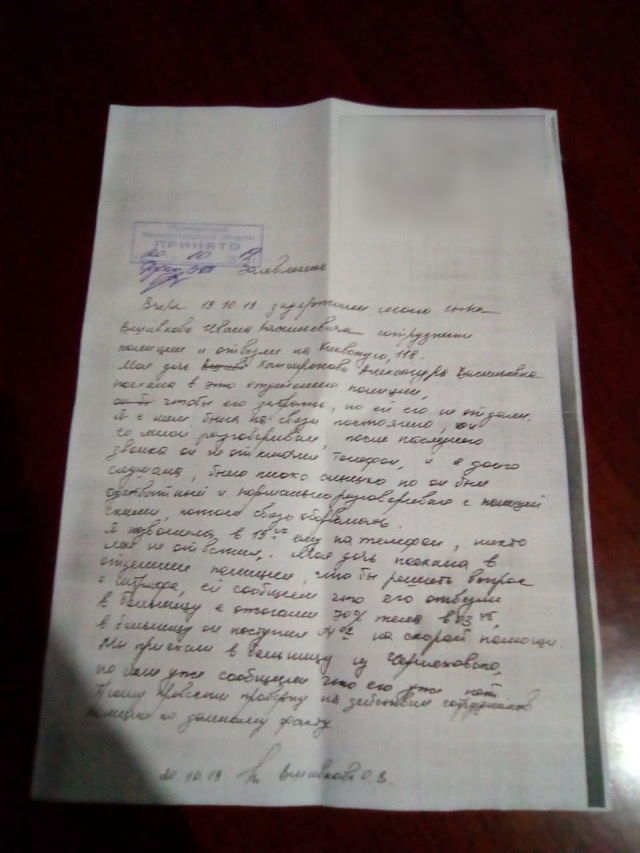 Прокуратура
ПРИНЯТО
20 10 19
Заявление
Вчера 19.10.19. задержали моего сына
Вшивкова Ивана Васильевича сотрудники
полиции и отвезли на Киевскую, 118.
Моя дочь Александра Васильевна
поехала в это отделение полиции,
чтобы его забрать, но ей его не отдали.
Я с ним была на связи постоянно, он
со мной разговаривал, после последнего
звонка он не отключил телефон, и я долго
слушала, было плохо слышно но он был
адекватный и нормально разговаривал с полицей
скими, потом связь оборвалась.
Я позвонила в ему на телефон, никто
мне не ответил. Моя дочь поехала в
отделение полиции, что бы решить вопрос
с штрафом, ей сообщили что его отвезли
в больницу с ожогами 70% тела в 03 45,
в больницу он поступил на скорой помощи.
Мы приехали в больницу из Черняховска,
но нам уже сообщили что его уже нет
Прошу провести проверку на действия сотрудников
полиции по данному факту
20.10.19 Вшивкова О.В.